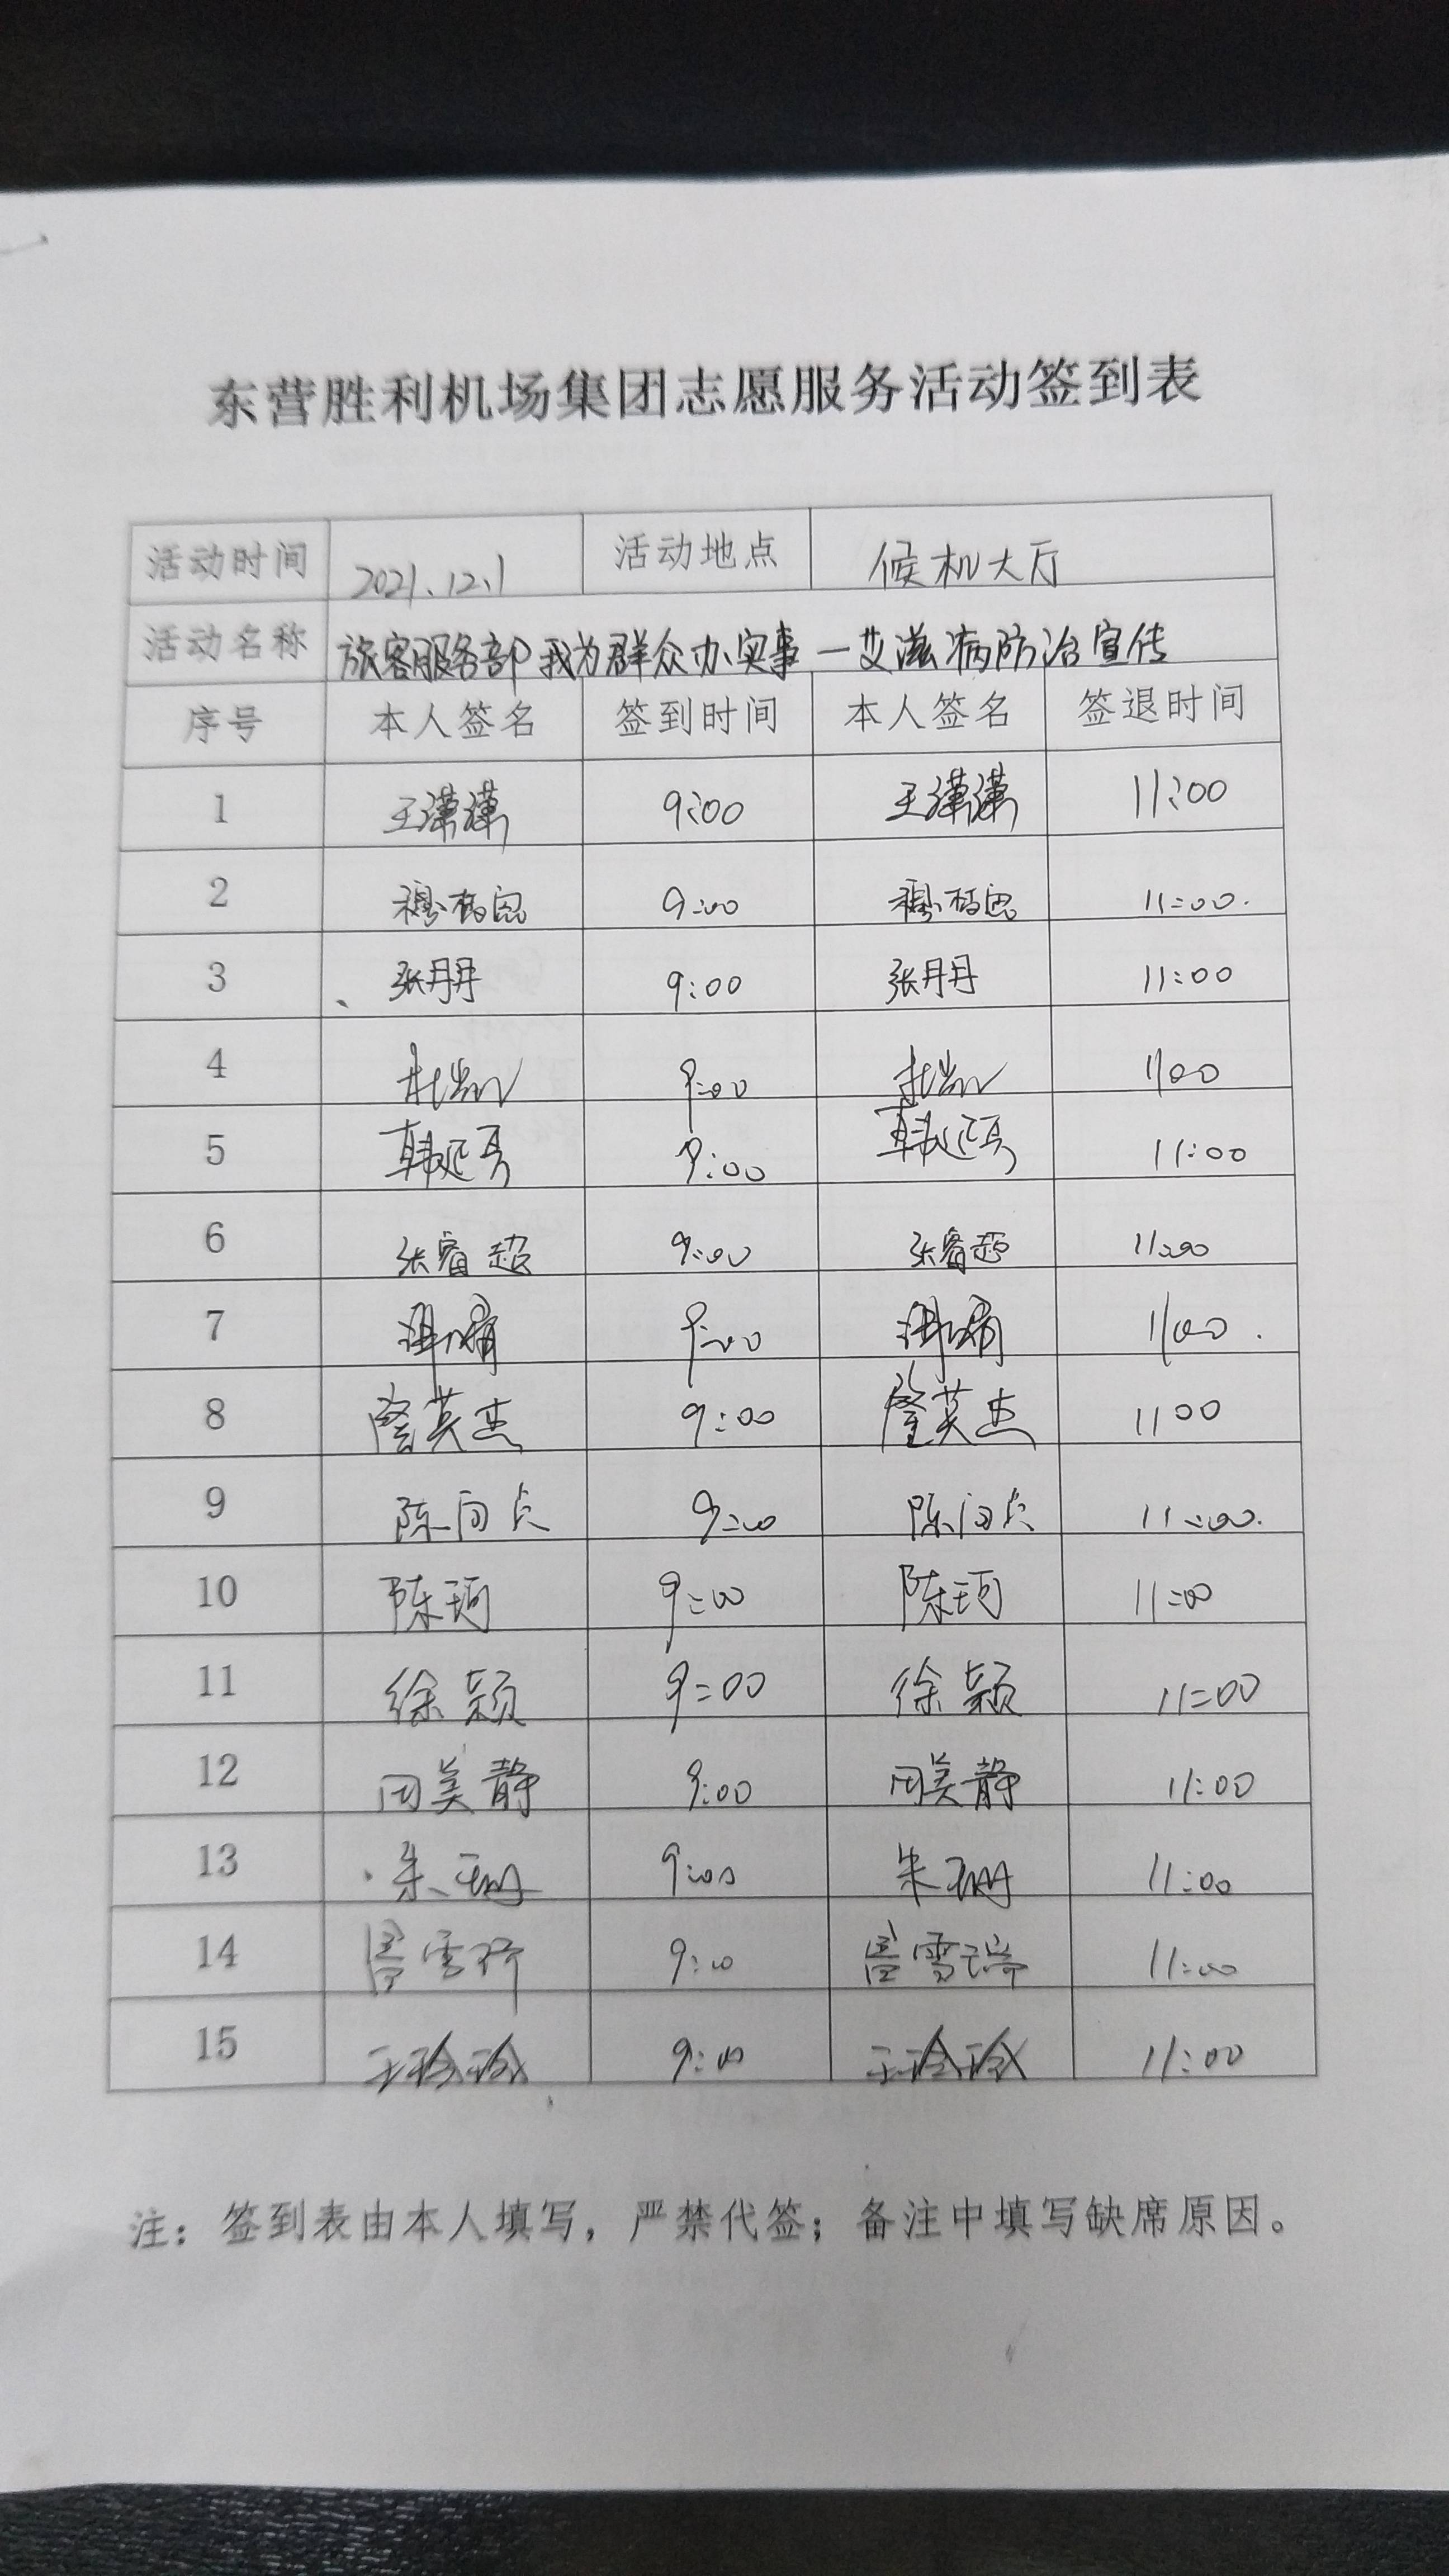 东营胜利机场集团志愿服务活动签到表
活动时间 2021.12.1 活动地点 候机大厅
活动名称 旅客服务部我为群众办实事—艾滋病防治宣传
序号 本人签名 签到时间 本人签名 签退时间
1 王潇潇 9:00 王潇潇 11:00
2 9:00 11:00.
3 张丹丹 9:00 张丹丹 11:00
4 杜 9:00 杜 11:00
5 韩延 9:00 韩延 11:00
6 张睿超 9:00 张睿超 11:00
7 9:00 11:00.
8 隆英杰 9:00 隆英杰 11 00
9 陈向点 9:00 陈向点 11:00.
10 陈珂 9:00 陈珂 11:00
11 徐颖 9:00 徐颖 11:00
12 田美静 9:00 田美静 11:00
13 朱珊 9:00 朱珊 11:00
14 雪 9:00 雪瑞 11:00
15 王玲玲 9:00 王玲玲 11:00
注：签到表由本人填写，严禁代签；备注中填写缺席原因。